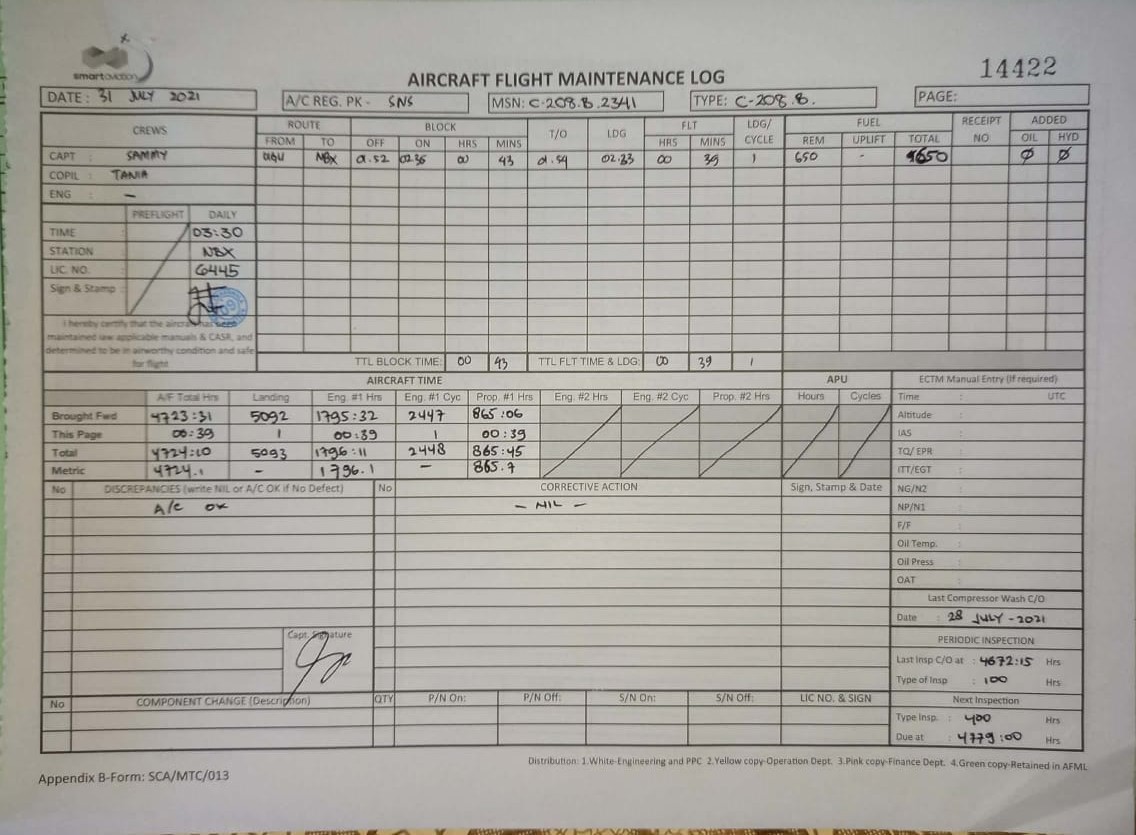 smartaviation
AIRCRAFT FLIGHT MAINTENANCE LOG
14422
DATE: 31 JULY 2021
A/C REG. PK - SNS
MSN: C-208.B.2341
TYPE: C-208.B.
PAGE:
CREWS ROUTE BLOCK T/O LDG FLT LDG/ CYCLE FUEL RECEIPT NO ADDED
FROM TO OFF ON HRS MINS HRS MINS REM UPLIFT TOTAL OIL HYD
CAPT : SAMMY NBX 01.52 02.35 00 43 01.54 02.33 00 39 1 650 - 650 Ø Ø
COPIL : TANIA
ENG : -
PREFLIGHT DAILY
TIME : 03:30
STATION : NBX
LIC. NO. : 6445
Sign & Stamp :
I hereby certify that the aircraft has been
maintained iaw applicable manuals & CASR, and
determined to be in airworthy condition and safe
for flight
TTL BLOCK TIME: 00 43 TTL FLT TIME & LDG: 00 39 1
AIRCRAFT TIME APU ECTM Manual Entry (If required)
A/F Total Hrs Landing Eng. #1 Hrs Eng. #1 Cyc Prop. #1 Hrs Eng. #2 Hrs Eng. #2 Cyc Prop. #2 Hrs Hours Cycles Time : UTC
Brought Fwd 4723:31 5092 1795:32 2447 865:06 Altitude :
This Page 00:39 1 00:39 1 00:39 IAS :
Total 4724:10 5093 1796:11 2448 865:45 TQ/ EPR :
Metric 4724.1 - 1796.1 - 865.7 ITT/EGT :
No DISCREPANCIES (write NIL or A/C OK if No Defect) No CORRECTIVE ACTION Sign, Stamp & Date NG/N2 :
A/C OK - NIL - NP/N1 :
F/F :
Oil Temp. :
Oil Press :
OAT :
Last Compressor Wash C/O
Date : 28 JULY - 2021
Capt. Signature
PERIODIC INSPECTION
Last Insp C/O at : 4672:15 Hrs
Type of Insp : 100 Hrs
No COMPONENT CHANGE (Description) QTY P/N On: P/N Off: S/N On: S/N Off: LIC NO. & SIGN Next Inspection
Type Insp. : 400 Hrs
Due at : 4779:00 Hrs
Distribution: 1.White-Engineering and PPC 2.Yellow copy-Operation Dept. 3.Pink copy-Finance Dept. 4.Green copy-Retained in AFML
Appendix B-Form: SCA/MTC/013